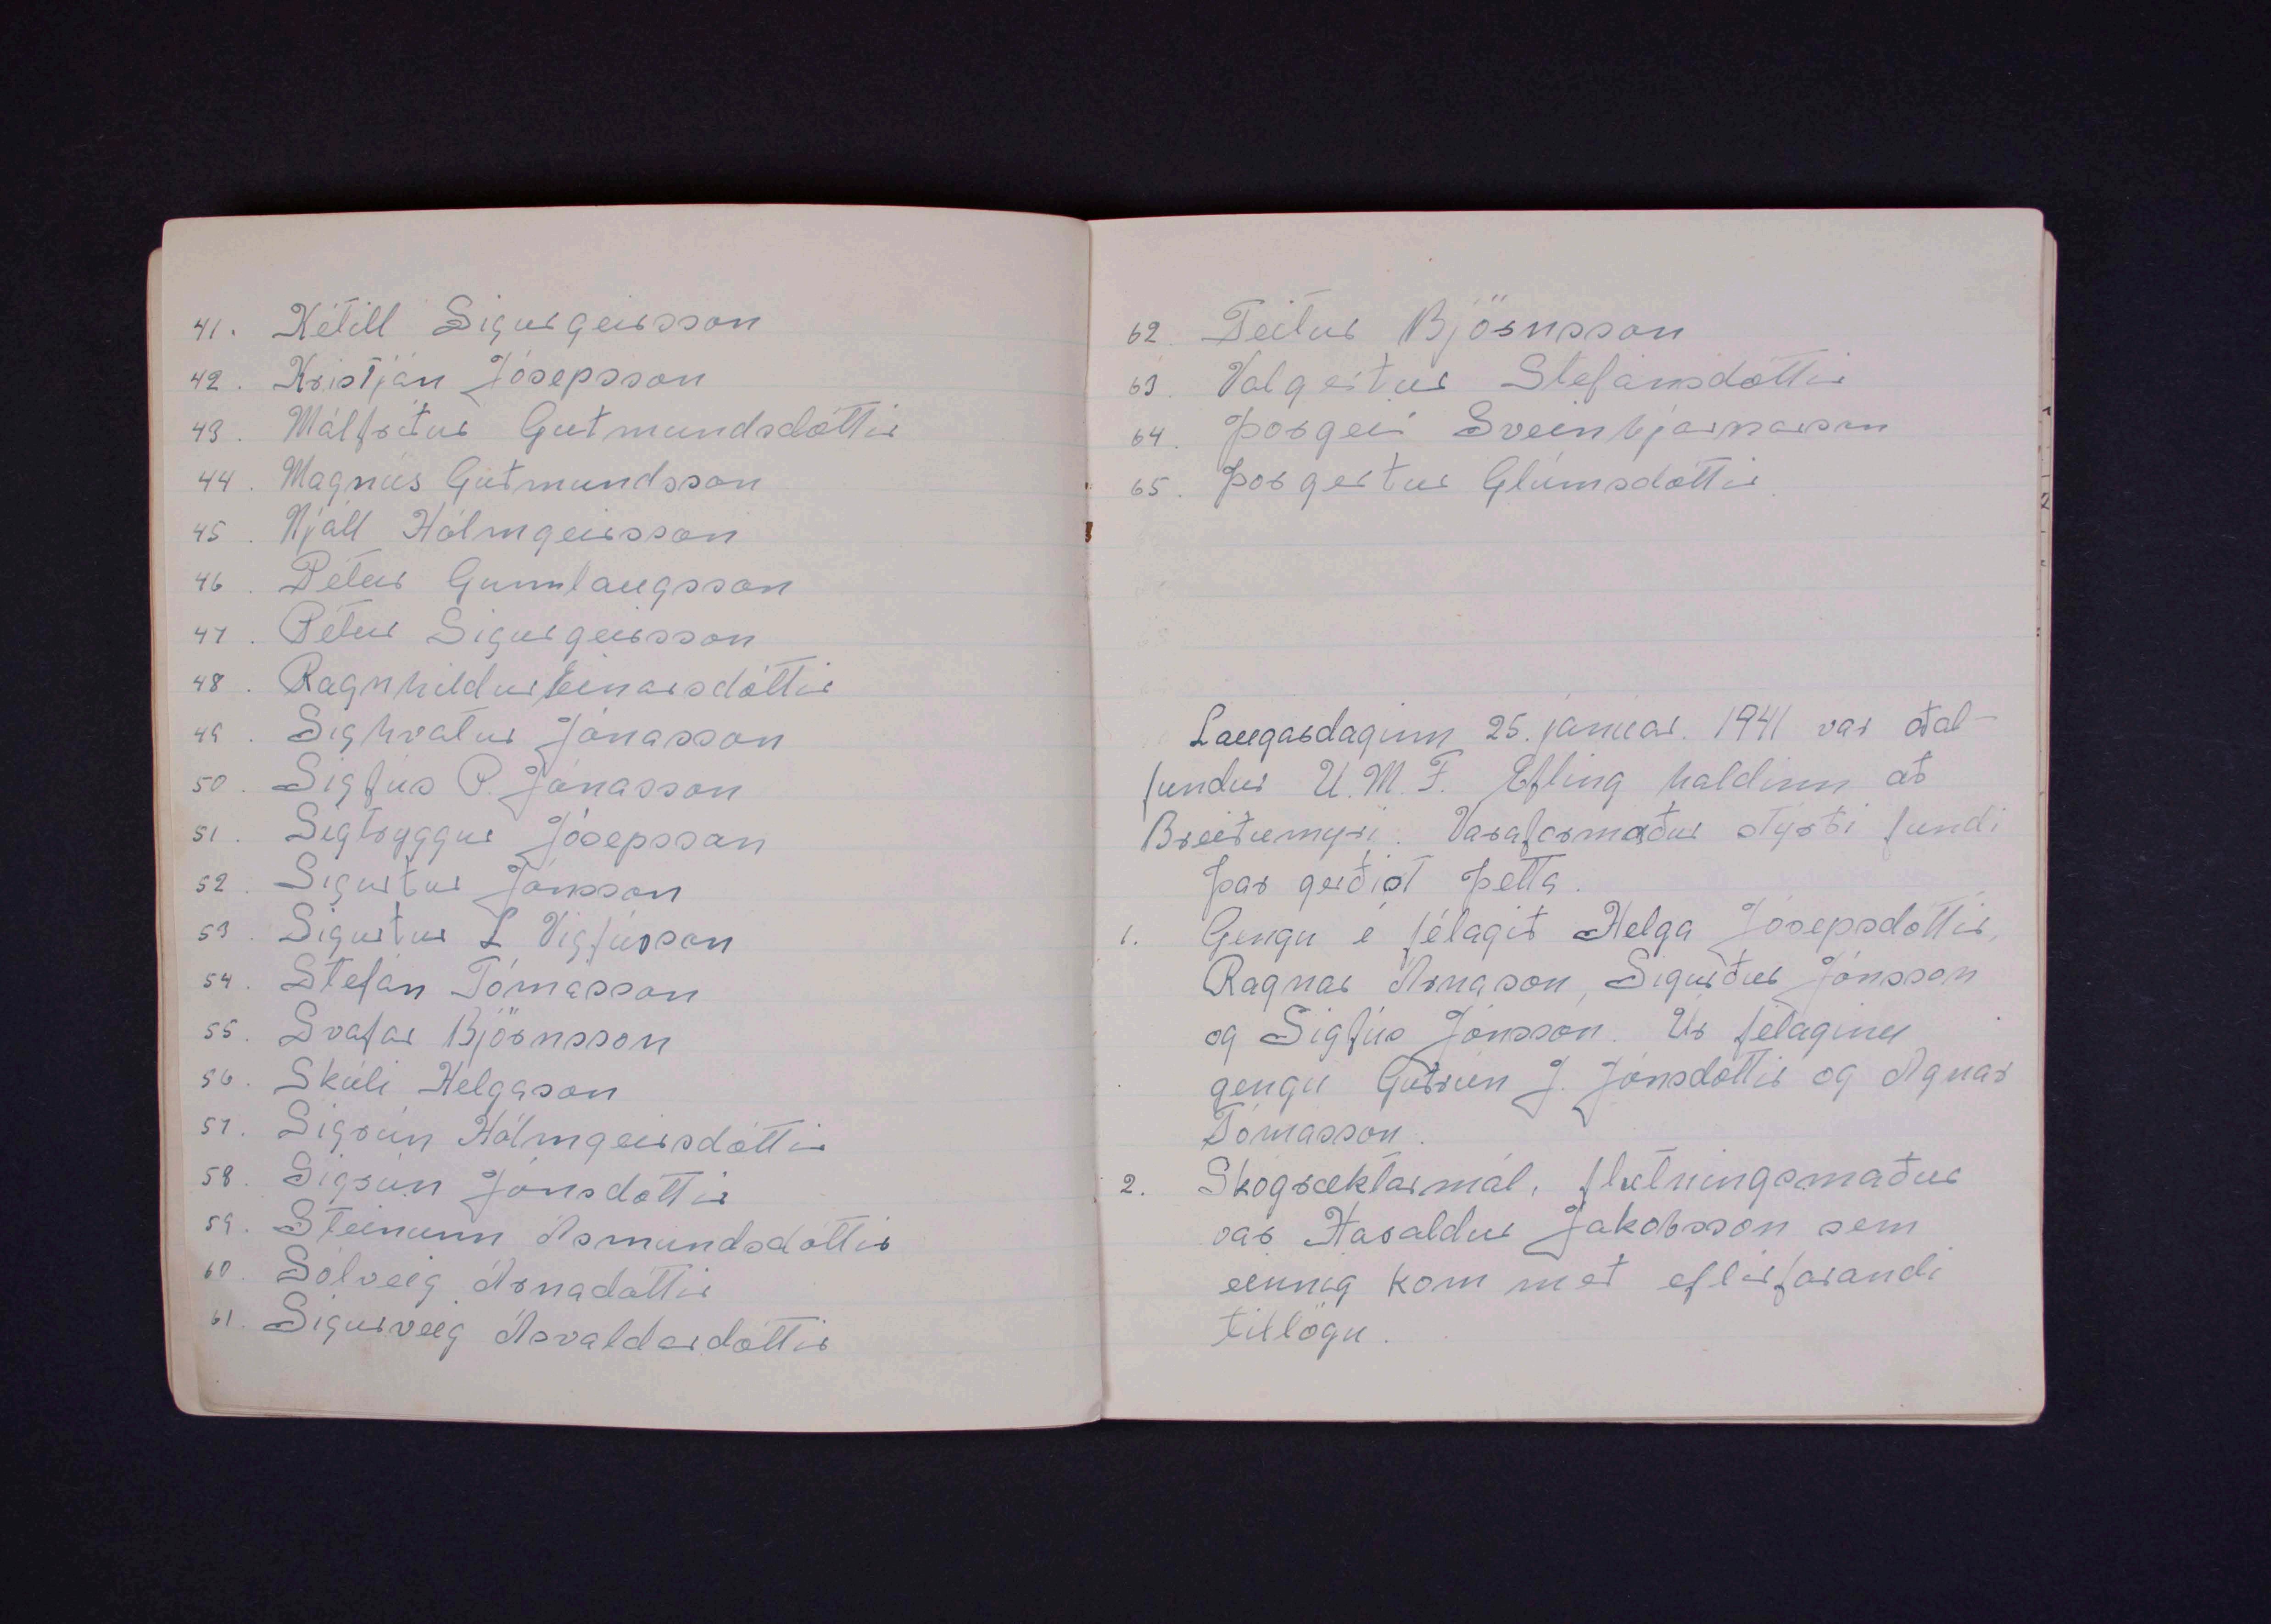 41. Ketill Sigurgeirsson
42. Kristján Jósepsson
43. Málfríður Guðmundsdóttir
44. Magnús Guðmundsson
45. Njáll Hólmgeirsson
46. Pétur Gunnlaugsson
47. Pétur Sigurgeirsson
48. Ragnhildur Einarsdóttir
49. Sighvatur Jónasson
50. Sigfús P. Jónasson
51. Sigtryggur Jósepsson
52. Sigurður Jónsson
53. Sigurður L Vigfússon
54. Stefán Tómasson
55. Svafar Björnsson
56. Skúli Helgason
57. Sigrún Hólmgeirsdóttir
58. Sigrún Jónsdóttir
59. Steinunn Ásmundsdóttir
60. Sólveig Árnadóttir
61. Sigurveig Ásvaldardóttir
62. Teitur Björnsson
63. Valgerður Stefánsdóttir
64. Þorgeir Sveinbjarnarson
65. Þorgerður Glúmsdóttir
Laugardaginn 25. janúar. 1941 var aðal-
fundur U.M.F. Efling haldinn að
Breiðumýri. Varaformaður stýrði fundi
Þar gerðist þetta.
1. Gengu í félagið Helga Jósepsdóttir,
Ragnar Árnason, Sigurður Jónsson
og Sigfús Jónsson. Úr félaginu
gengu Guðrún J. Jónsdóttir og Agnar
Tómasson.
2. Skógræktarmál, flutningsmaður
var Haraldur Jakobsson sem
einnig kom með eftirfarandi
tillögu.